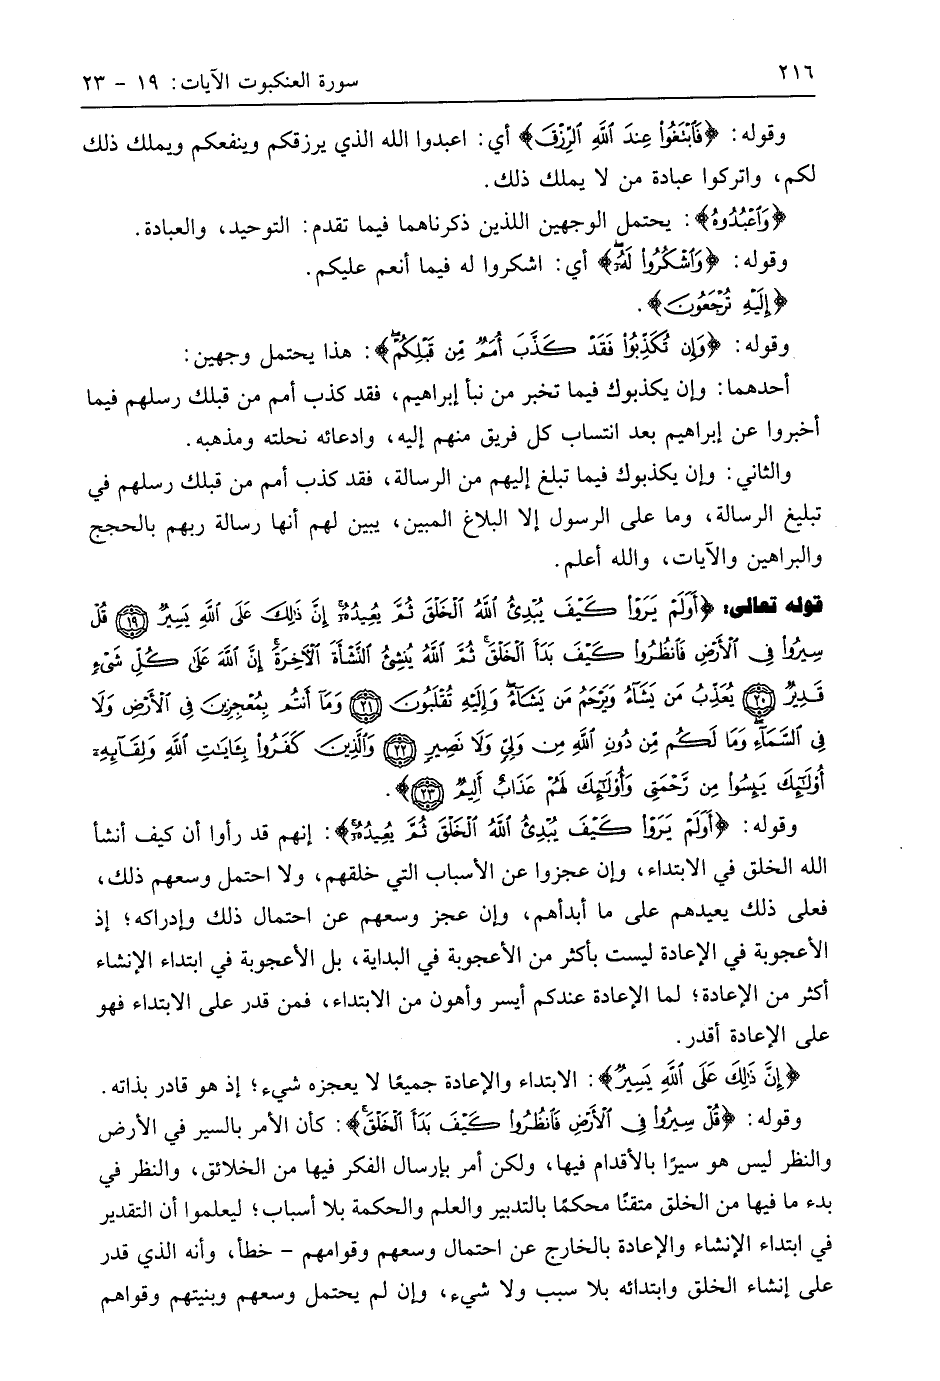 ٢١٦
سورة العنكبوت الآيات: ١٩ - ٢٣
وقوله: ﴿فَٱبۡتَغُواْ عِندَ ٱللَّهِ ٱلرِّزۡقَ﴾ أي: اعبدوا الله الذي يرزقكم وينفعكم ويملك ذلك
لكم، واتركوا عبادة من لا يملك ذلك.
﴿وَٱعۡبُدُوهُ﴾: يحتمل الوجهين اللذين ذكرناهما فيما تقدم: التوحيد، والعبادة.
وقوله: ﴿وَٱشۡكُرُواْ لَهُۥٓۖ﴾ أي: اشكروا له فيما أنعم عليكم.
﴿إِلَيۡهِ تُرۡجَعُونَ﴾.
وقوله: ﴿وَإِن تُكَذِّبُواْ فَقَدۡ كَذَّبَ أُمَمٞ مِّن قَبۡلِكُمۡۖ﴾: هذا يحتمل وجهين:
أحدهما: وإن يكذبوك فيما تخبر من نبأ إبراهيم، فقد كذب أمم من قبلك رسلهم فيما
أخبروا عن إبراهيم بعد انتساب كل فريق منهم إليه، وادعائه نحلته ومذهبه.
والثاني: وإن يكذبوك فيما تبلغ إليهم من الرسالة، فقد كذب أمم من قبلك رسلهم في
تبليغ الرسالة، وما على الرسول إلا البلاغ المبين، يبين لهم أنها رسالة ربهم بالحجج
والبراهين والآيات، والله أعلم.
قوله تعالى: ﴿أَوَلَمۡ يَرَوۡاْ كَيۡفَ يُبۡدِئُ ٱللَّهُ ٱلۡخَلۡقَ ثُمَّ يُعِيدُهُۥٓۚ إِنَّ ذَٰلِكَ عَلَى ٱللَّهِ يَسِيرٞ ۝١٩ قُلۡ
سِيرُواْ فِي ٱلۡأَرۡضِ فَٱنظُرُواْ كَيۡفَ بَدَأَ ٱلۡخَلۡقَۚ ثُمَّ ٱللَّهُ يُنشِئُ ٱلنَّشۡأَةَ ٱلۡأٓخِرَةَۚ إِنَّ ٱللَّهَ عَلَىٰ كُلِّ شَيۡءٖ
قَدِيرٞ ۝٢٠ يُعَذِّبُ مَن يَشَآءُ وَيَرۡحَمُ مَن يَشَآءُۖ وَإِلَيۡهِ تُقۡلَبُونَ ۝٢١ وَمَآ أَنتُم بِمُعۡجِزِينَ فِي ٱلۡأَرۡضِ وَلَا
فِي ٱلسَّمَآءِۖ وَمَا لَكُم مِّن دُونِ ٱللَّهِ مِن وَلِيّٖ وَلَا نَصِيرٖ ۝٢٢ وَٱلَّذِينَ كَفَرُواْ بِـَٔايَٰتِ ٱللَّهِ وَلِقَآئِهِۦٓ
أُوْلَٰٓئِكَ يَئِسُواْ مِن رَّحۡمَتِي وَأُوْلَٰٓئِكَ لَهُمۡ عَذَابٌ أَلِيمٞ ۝٢٣﴾.
وقوله: ﴿أَوَلَمۡ يَرَوۡاْ كَيۡفَ يُبۡدِئُ ٱللَّهُ ٱلۡخَلۡقَ ثُمَّ يُعِيدُهُۥٓۚ﴾: إنهم قد رأوا أن كيف أنشأ
الله الخلق في الابتداء، وإن عجزوا عن الأسباب التي خلقهم، ولا احتمل وسعهم ذلك،
فعلى ذلك يعيدهم على ما أبدأهم، وإن عجز وسعهم عن احتمال ذلك وإدراكه؛ إذ
الأعجوبة في الإعادة ليست بأكثر من الأعجوبة في البداية، بل الأعجوبة في ابتداء الإنشاء
أكثر من الإعادة؛ لما الإعادة عندكم أيسر وأهون من الابتداء، فمن قدر على الابتداء فهو
على الإعادة أقدر.
﴿إِنَّ ذَٰلِكَ عَلَى ٱللَّهِ يَسِيرٞ﴾: الابتداء والإعادة جميعًا لا يعجزه شيء؛ إذ هو قادر بذاته.
وقوله: ﴿قُلۡ سِيرُواْ فِي ٱلۡأَرۡضِ فَٱنظُرُواْ كَيۡفَ بَدَأَ ٱلۡخَلۡقَۚ﴾: كأن الأمر بالسير في الأرض
والنظر ليس هو سيرًا بالأقدام فيها، ولكن أمر بإرسال الفكر فيها من الخلائق، والنظر في
بدء ما فيها من الخلق متقنًا محكمًا بالتدبير والعلم والحكمة بلا أسباب؛ ليعلموا أن التقدير
في ابتداء الإنشاء والإعادة بالخارج عن احتمال وسعهم وقوامهم - خطأ، وأنه الذي قدر
على إنشاء الخلق وابتدائه بلا سبب ولا شيء، وإن لم يحتمل وسعهم وبنيتهم وقواهم